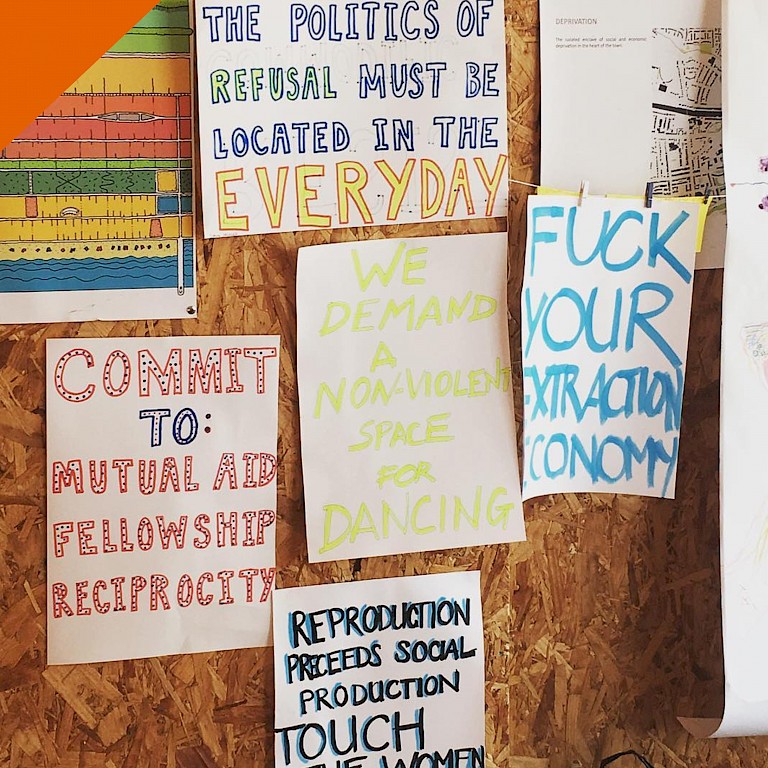 THE POLITICS OF
REFUSAL MUST BE
LOCATED IN THE
EVERYDAY
DEPRIVATION
The isolated enclave of social and economic
deprivation in the heart of the town.
FUCK
YOUR
EXTRACTION
ECONOMY
WE
DEMAND
A
NON-VIOLENT
SPACE
FOR
DANCING
COMMIT
TO:
MUTUAL AID
FELLOWSHIP
RECIPROCITY
REPRODUCTION
PRECEEDS SOCIAL
PRODUCTION
TOUCH
THE WOMEN